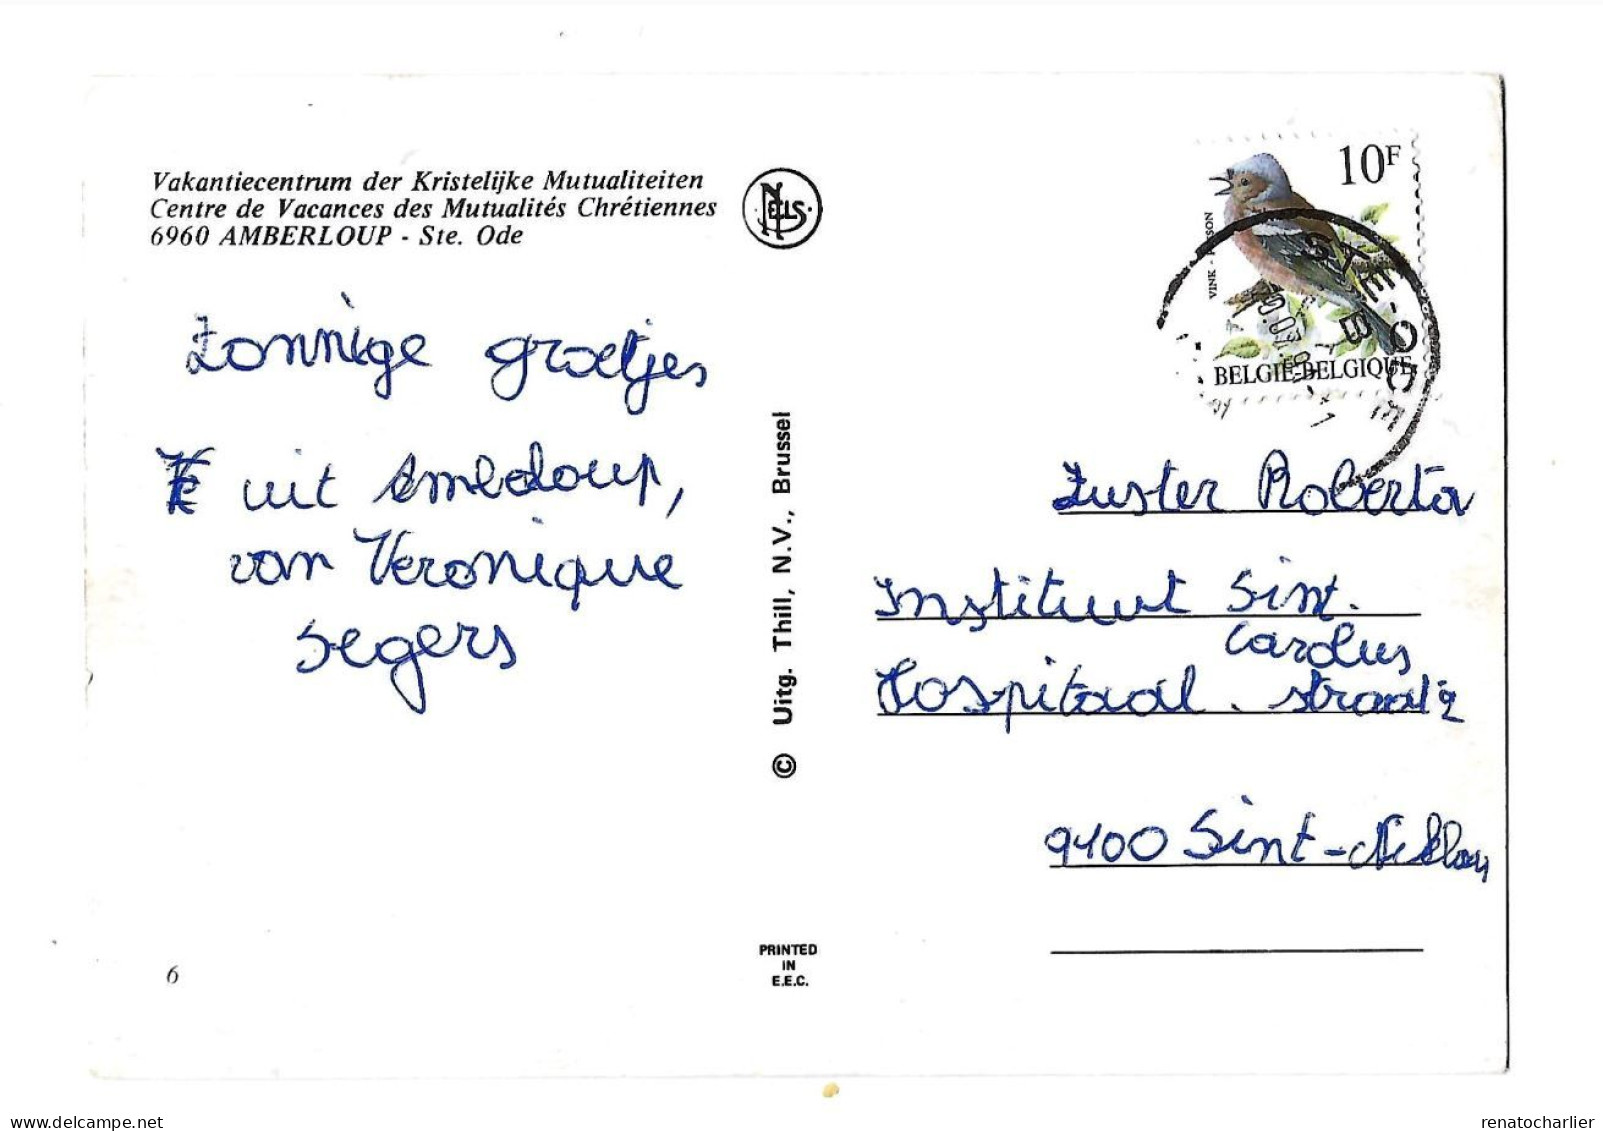 Vakantiecentrum der Kristelijke Mutualiteiten
Centre de Vacances des Mutualités Chrétiennes
6960 AMBERLOUP - Ste. Ode
NELS
Zonnige groetjes
uit Ambloup,
van Veronique
Segers
6
© Uitg. Thill, N.V., Brussel
PRINTED
IN
E.E.C.
10F
VINK - PINSON
BELGIE-BELGIQUE
STE-ODE
B
Zuster Roberta
Instituut Sint.
Carolus
Hospitaal. straat 2
9100 Sint-Niklaas
delcampe.net
renatocharlier